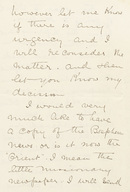 however let me know
if there is any
urgency and I
will reconsider the
matter. and when
let you know my
decision
I would very
much like to have
a copy of the Baptism
news or is it now the
Friend? I mean the
little missionary
newspaper. I will send